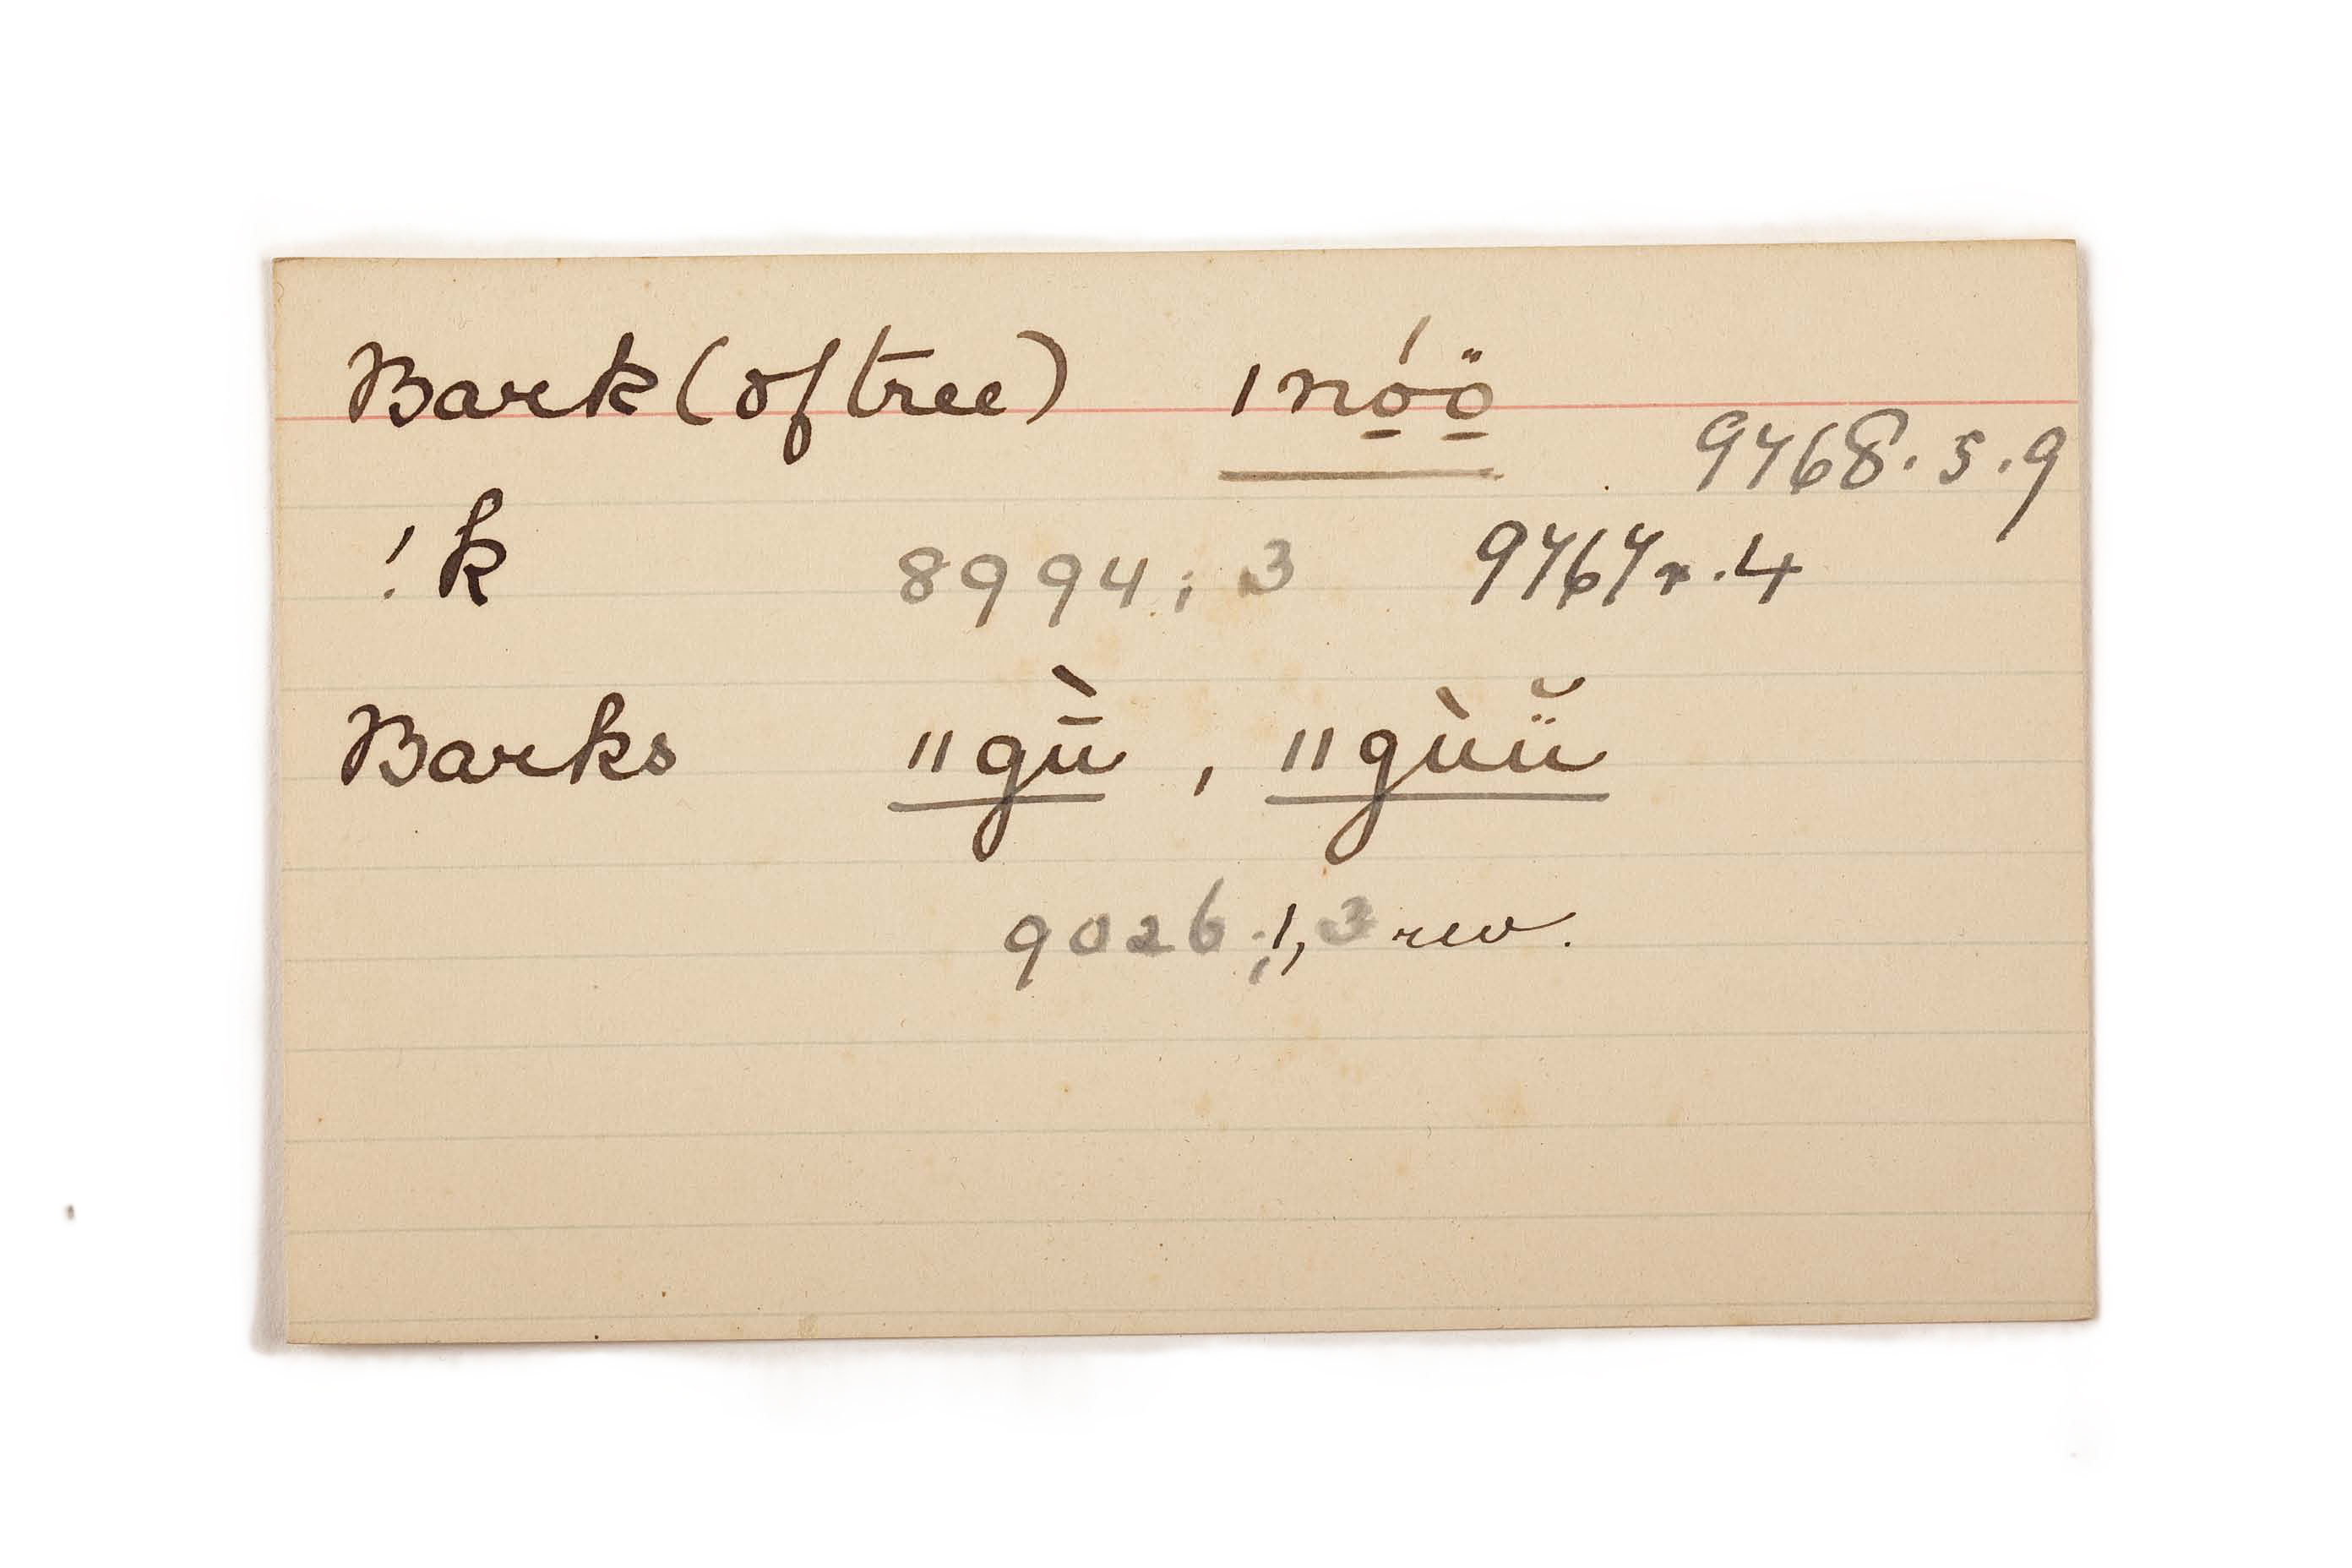 Bark (of tree) ǀnó̱ö̱
9468. s. 9
!k 8994; 3 9464r. 4
Barks ǁgū̀, ǁgùü̆
9026; 1, 3 rev.